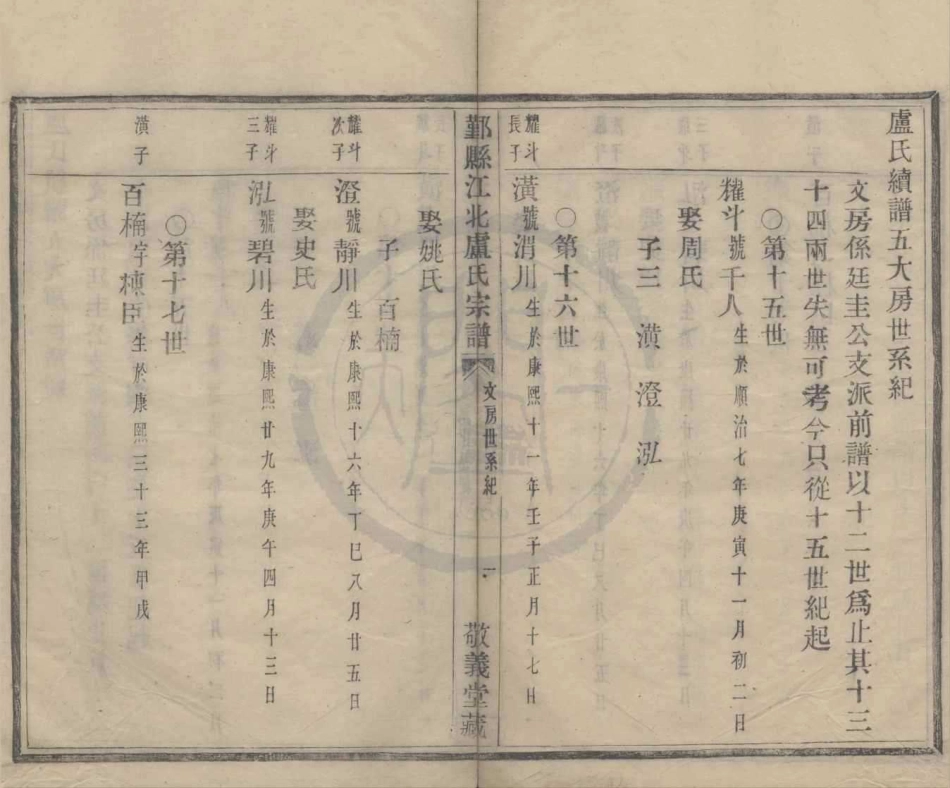 盧氏續譜五大房世系紀
文房係廷圭公支派前譜以十二世爲止其十三
十四兩世失無可考今只從十五世紀起
〇第十五世
耀斗號千人生於順治七年庚寅十一月初二日
娶周氏
子三 潢 澄 泓
〇第十六世
耀斗長子
潢號渭川生於康熙十一年壬子正月十七日
鄞縣江北盧氏宗譜 文房世系紀 一 敬義堂藏
娶姚氏
〇子 百楠
耀斗次子
澄號靜川生於康熙十六年丁巳八月廿五日
娶史氏
耀斗三子
泓號碧川生於康熙廿九年庚午四月十三日
〇第十七世
潢子
百楠字棟臣生於康熙三十三年甲戌